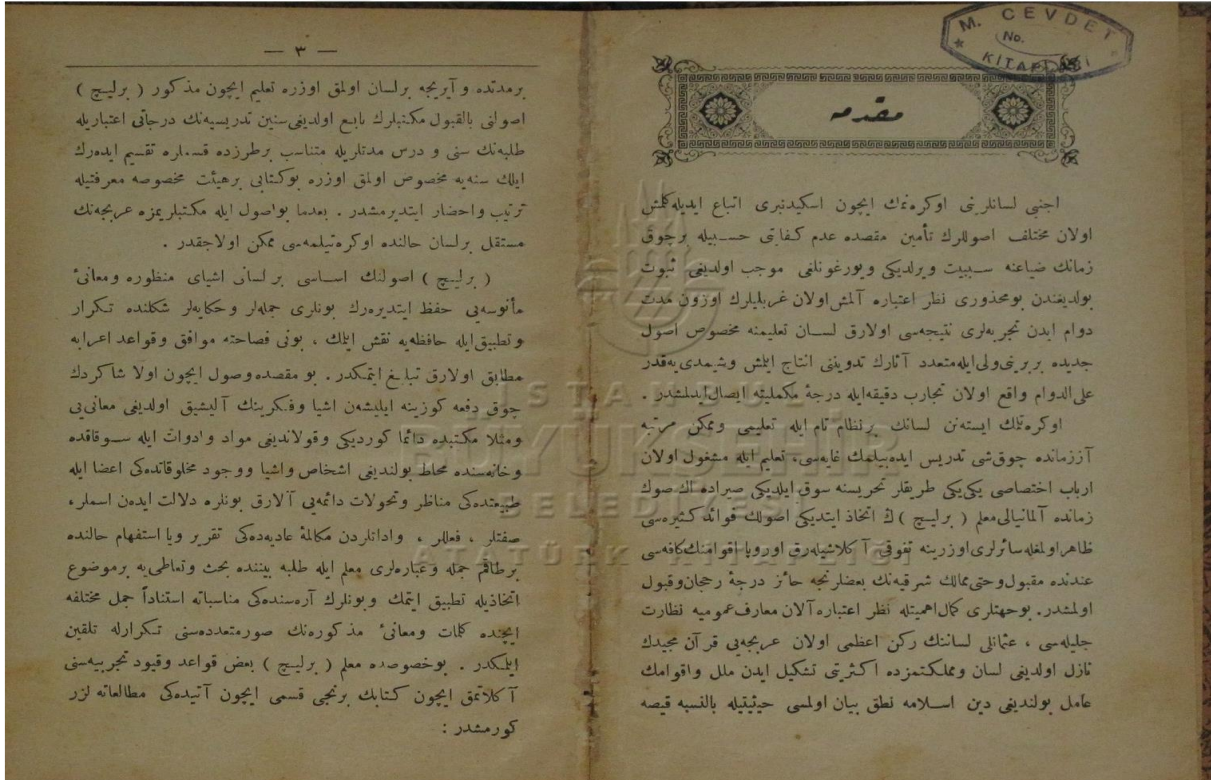 M. CEVDET
No.
KİTAPLIĞI
مقدمه
اجنبی لسانلرینی اوكرنمك ایچون اسكیدنبری اتباع ایدیله‌كلمش
اولان مختلف اصوللرك تأمین مقصده عدم كفایتی حسبیله برچوق
زمانك ضیاعنه سببیت ویردیكی ویورغونلغی موجب اولدیغی ثبوت
بولدیغندن بومحذوری نظر اعتباره آلمش اولان غربلیلرك اوزون مدت
دوام ایدن تجربه‌لری نتیجه‌سی اولارق لسان تعلیمنه مخصوص اصول
جدیده بربرینی ولی ایله متعدد آثارك تدویننی انتاج ایلمش وشیمدی‌یه‌قدر
علی‌الدوام واقع اولان تجارب دقیقه‌ایله درجهٔ مكملیته ایصال‌ایدلمشدر .
اوكرتلك ایسته‌نن لسانك برنظام تام ایله تعلیمی وممكن مرتبه
آززمانده چوق‌شی تدریس ایده‌بیلمك غایه‌سی، تعلیم ایله مشغول اولان
ارباب اختصاصی یكی‌یكی طریقلر تحریسنه سوق ایلدیكی صیراده اك‌صوك
زمانده آلمانیالی‌معلم ( برلیچ )ك اتخاذ ایتدیكی اصولك فوائد كثیره‌سی
ظاهر اولمغله سائرلری اوزرینه تفوقی آكلاشیله‌رق اوروپا اقوامنك‌كافه‌سی
عندنده مقبول‌وحتی‌ممالك شرقیه‌نك بعضلرنجه حائز درجهٔ رجحان‌وقبول
اولمشدر. بوجهتلری كمال‌اهمیتله نظر اعتباره‌آلان معارف‌عمومیه نظارت
جلیله‌سی ، عثمانلی لساننك ركن اعظمی اولان عربجه‌یی قرآن مجیدك
نازل اولدیغی لسان ومملكتمزده اكثریتی تشكیل ایدن ملل واقوامك
عامل بولندیغی دین اسلامه نطق بیان اولمسی حیثیتیله بالنسبه قیصه
— ٣ —
برمدتده وآیریجه برلسان اولمق اوزره تعلیم ایچون مذكور ( برلیچ )
اصولنی بالقبول مكتبلرك تابع اولدیغی‌سنین تدریسیه‌نك درجاتی اعتباریله
طلبه‌نك سنی و درس مدتلریله متناسب برطرزده قسملره تقسیم ایده‌رك
ایلك سنه‌یه مخصوص اولمق اوزره بوكتابی برهیئت مخصوصه معرفتیله
ترتیب واحضار ایتدیرمشدر . بعدما بواصول ایله مكتبلریمزه عربجه‌نك
مستقل برلسان حالنده اوكره‌تیلمه‌سی ممكن اولاجقدر .
( برلیچ ) اصولنك اساسی برلسانی اشیای منظوره ومعانیٔ
مأنوسه‌یی حفظ ایتدیره‌رك بونلری جمله‌لر وحكایه‌لر شكلنده تكرار
وتطبیق‌ایله حافظه‌یه نقش ایتمك ، بونی فصاحته موافق وقواعد اعرابه
مطابق اولارق تبلیغ ایتمكدر . بو مقصده وصول ایچون اولا شاكردك
چوق دفعه كوزینه ایلیشه‌ن اشیا وفكرینك آلیشیق اولدیغی معانی‌یی
ومثلا مكتبده دائما كوردیكی وقوللاندیغی مواد وادوات ایله سوقاقده
وخانه‌سنده محاط بولندیغی اشخاص واشیا ووجود مخلوقاتده‌كی اعضا ایله
طبیعتده‌كی مناظر وتحولات دائمه‌یی آلارق بونلره دلالت ایدن اسملر،
صفتلر ، فعللر ، واداتلردن مكالمهٔ عادیه‌ده‌كی تقریر ویا استفهام حالنده
برطاقم جمله وعباره‌لری معلم ایله طلبه بیننده بحث وتعاطی‌یه برموضوع
اتخاذیله تطبیق ایتمك وبونلرك آره‌سنده‌كی مناسباته استناداً جمل مختلفه
ایچنده كلمات ومعانیٔ مذكوره‌نك صورمتعدده‌سنی تكرارله تلقین
ایلمكدر . بوخصوصده معلم ( برلیچ ) بعض قواعد وقیود تجربیه‌سنی
آكلاتمق ایچون كتابك برنجی قسمی ایچون آتیده‌كی مطالعاته لزر
كورمشدر :
İSTANBUL
BÜYÜKŞEHİR
BELEDİYESİ
ATATÜRK KİTAPLIĞI